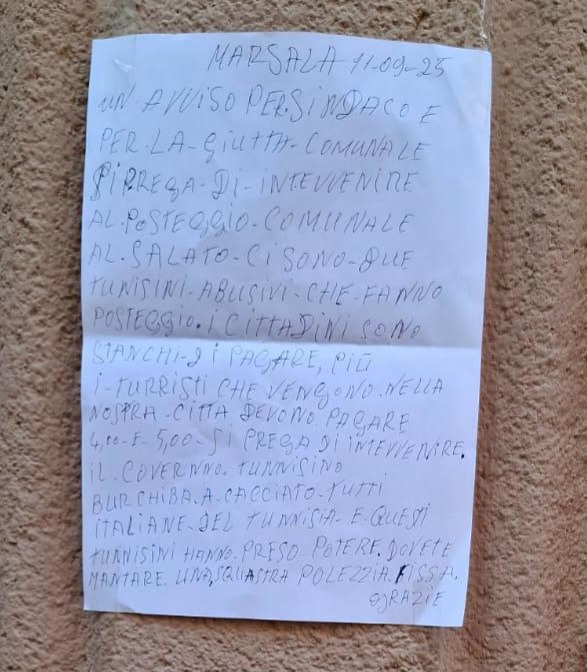 MARSALA 11-09-25
UN AVVISO PER.SINDACO E
PER.LA-GIUTTA-COMUNALE
SI PREGA-DI-INTEVVENIRE
AL.POSTEGGIO-COMUNALE
AL.SALATO-CI SONO-DUE
TUNISINI-ABUSIVI-CHE-FANNO
POSTEGGIO.I CITTADINI SONO
STANCHI-DI PAGARE, PIÙ
I-TURRISTI CHE VENGONO.NELLA
NOSTRA-CITTA DEVONO PAGARE
4,00-E 5,00-SI PREGA DI INTEVVENIRE.
IL-COVERNNO.TUNNISINO
BURCHIBA.A-CACCIATO-TUTTI
ITALIANE-DEL TUNNISIA-E-QUESTI
TUNNISINI HANNO-PRESO-POTERE.DOVETE
MANTARE.UNA,SQUASTRA POLEZZIA.FISSA.
GRAZIE